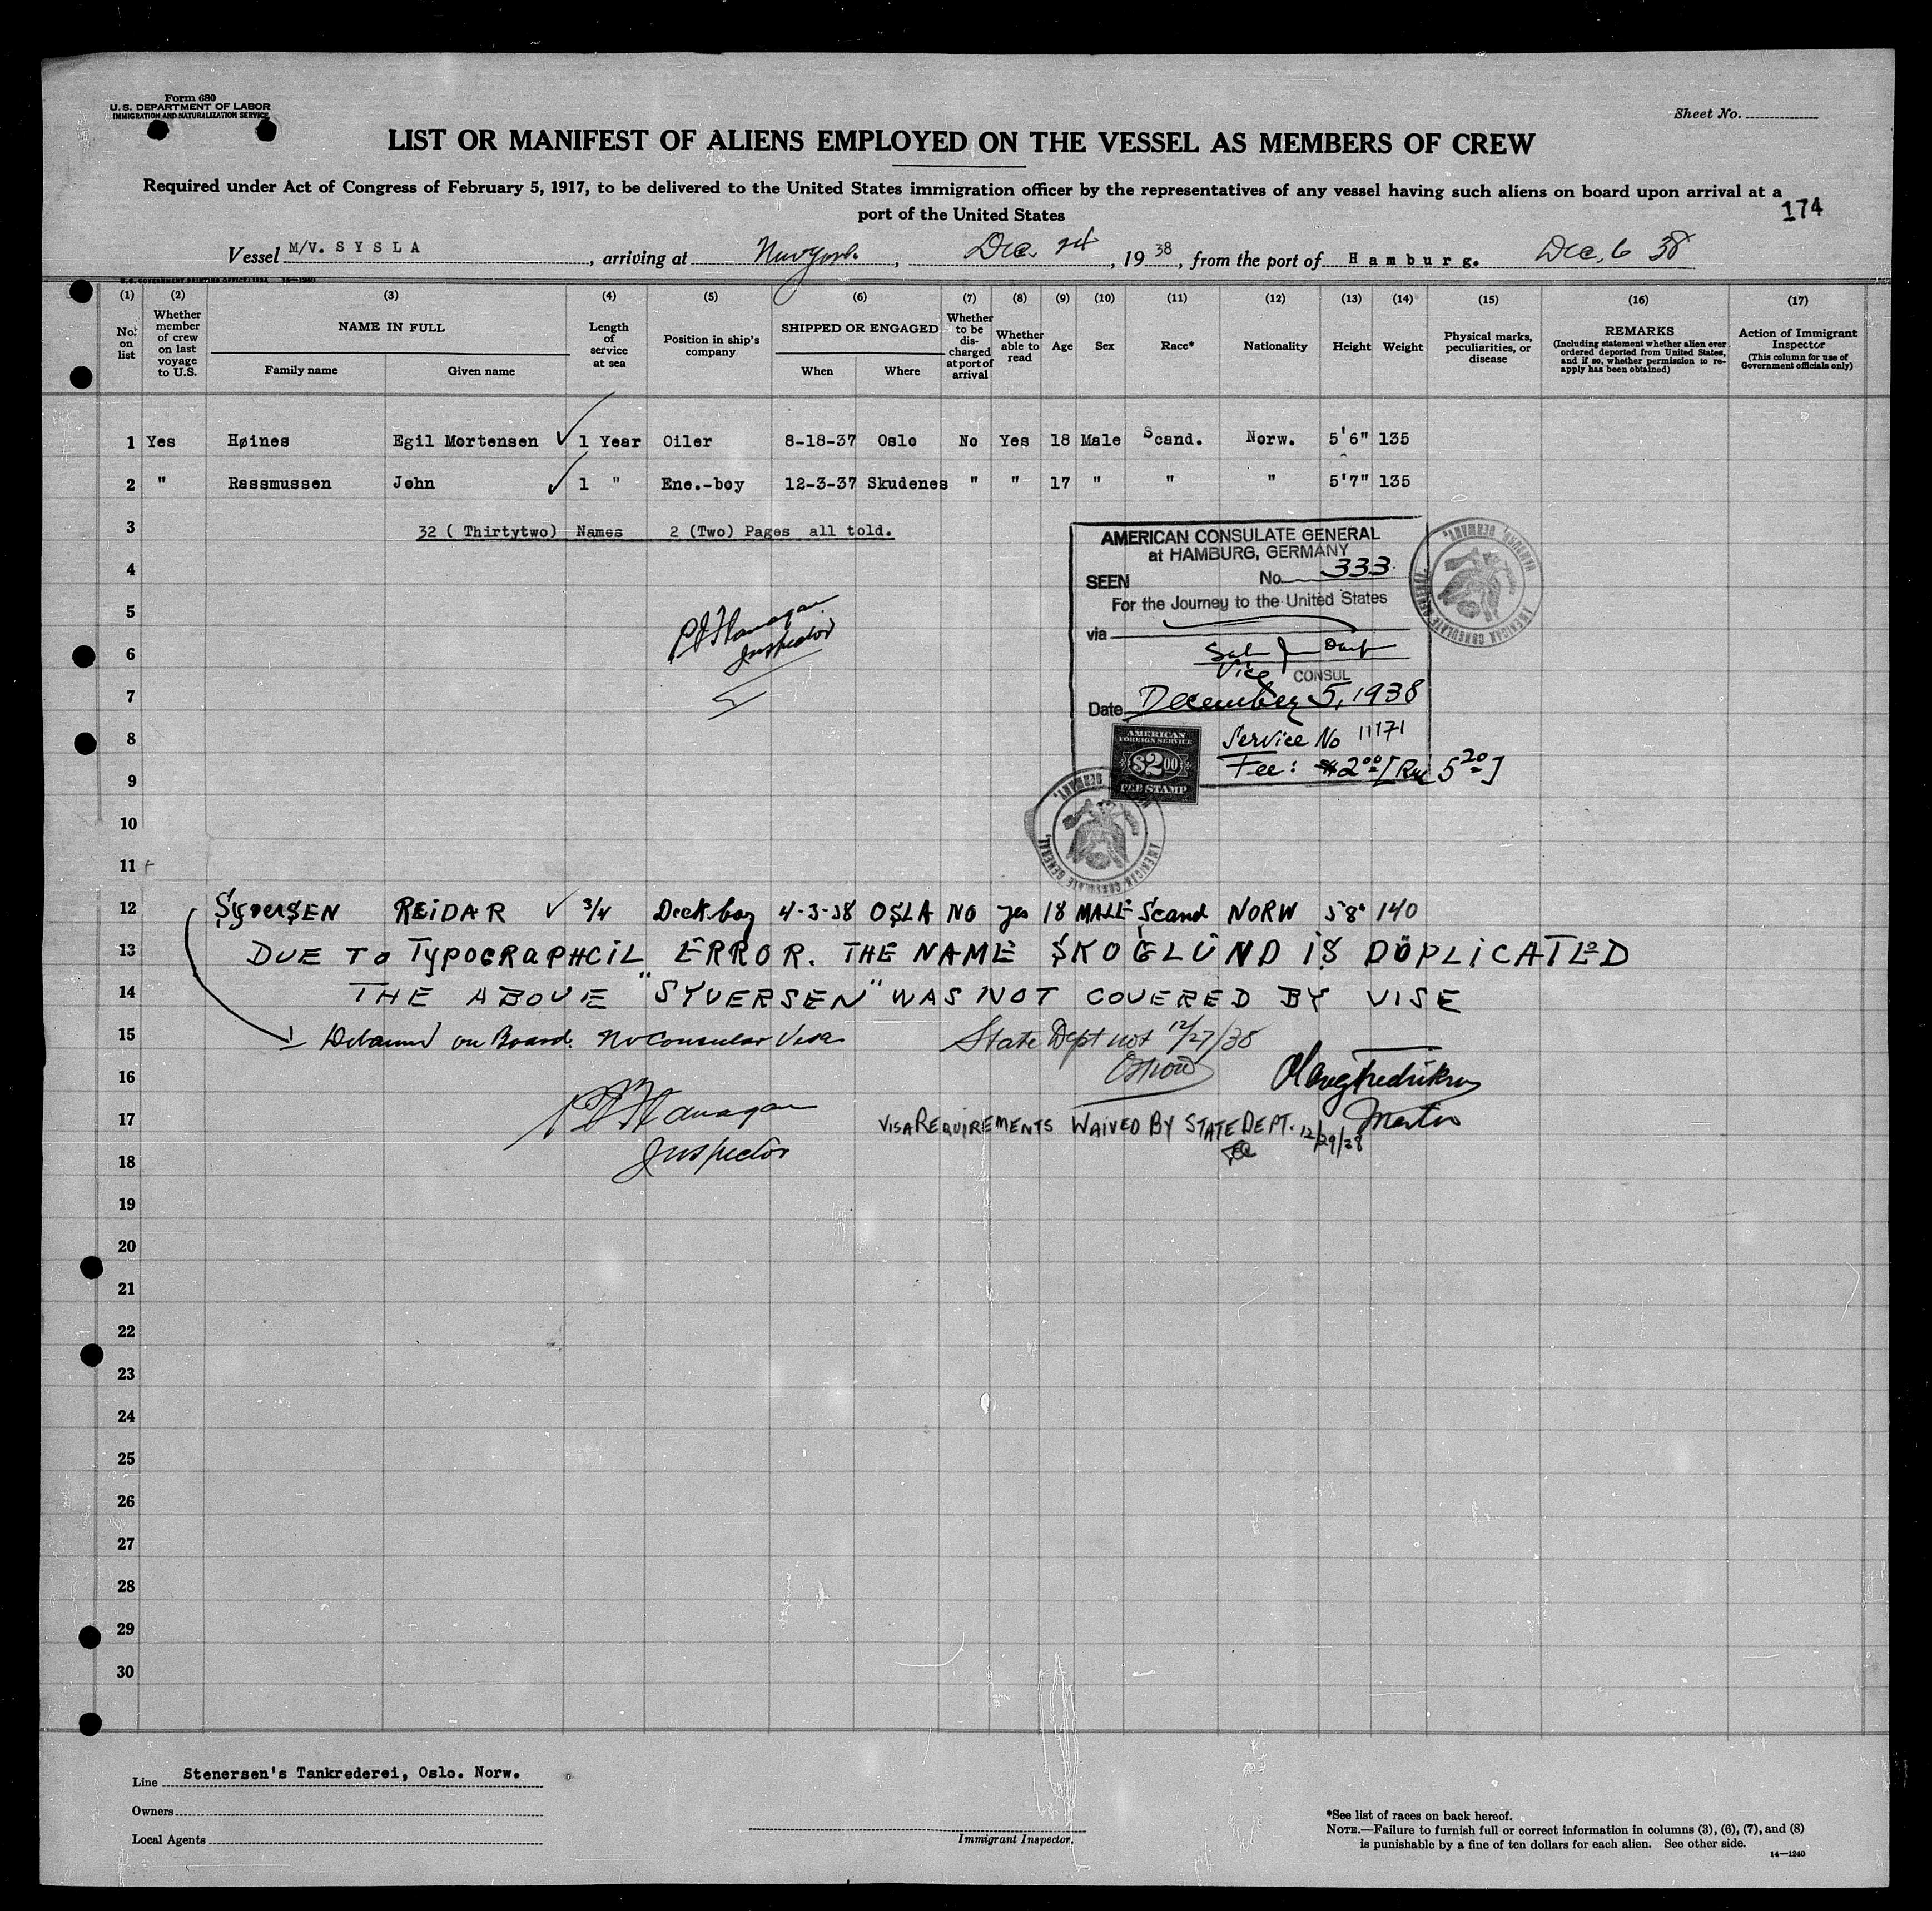 Form 680
U.S. DEPARTMENT OF LABOR
IMMIGRATION AND NATURALIZATION SERVICE
Sheet No.
LIST OR MANIFEST OF ALIENS EMPLOYED ON THE VESSEL AS MEMBERS OF CREW
Required under Act of Congress of February 5, 1917, to be delivered to the United States immigration officer by the representatives of any vessel having such aliens on board upon arrival at a
port of the United States
174
Vessel M/V. SYSLA, arriving at New York, Dec. 24, 1938, from the port of Hamburg. Dec. 6 38
(1) (2) (3) (4) (5) (6) (7) (8) (9) (10) (11) (12) (13) (14) (15) (16) (17)
No. on list
Whether member of crew on last voyage to U.S.
NAME IN FULL
Family name Given name
Length of service at sea
Position in ship's company
SHIPPED OR ENGAGED
When Where
Whether to be discharged at port of arrival
Whether able to read
Age Sex Race* Nationality Height Weight
Physical marks, peculiarities, or disease
REMARKS
(Including statement whether alien ever ordered deported from United States, and if so, whether permission to re-apply has been obtained)
Action of Immigrant Inspector
(This column for use of Government officials only)
1 Yes Høines Egil Mortensen ✓ 1 Year Oiler 8-18-37 Oslo No Yes 18 Male Scand. Norw. 5'6" 135
2 " Rassmussen John ✓ 1 " Ene.-boy 12-3-37 Skudenes " " 17 " " " 5'7" 135
3 32 ( Thirtytwo) Names 2 (Two) Pages all told.
AMERICAN CONSULATE GENERAL
at HAMBURG, GERMANY
4
SEEN No. 333
For the Journey to the United States
5
PJ Flanagan
Inspector
via
6
Vice CONSUL
7
Date December 5, 1938
8
Service No 11171
AMERICAN
FOREIGN SERVICE
$2.00
FEE STAMP
Fee: $2.00 [RM 5.20]
9
AMERICAN CONSULATE GENERAL HAMBURG, GERMANY.
AMERICAN CONSULATE GENERAL
10
11
12 SyverSEN REiDAR ✓ 3/4 Deck boy 4-3-38 OSLA NO yes 18 MALE Scand NORW 5'8" 140
13 DUE To TypOGRaPHCiL ERROR. THE NAME SKOGLUND iS DOPLiCATED
14 THE ABOVE "SYVERSEN" WAS NOT COVERED BY VISE
15 Detained on Board. No Consular Visa State Dept not 12/27/38
16
PJ Flanagan
17 VISA REQUIREMENTS WAIVED BY STATE DEPT. 12/29/38 Master
Inspector
18
19
20
21
22
23
24
25
26
27
28
29
30
Line Stenersen's Tankrederei, Oslo. Norw.
Owners
Local Agents
Immigrant Inspector.
*See list of races on back hereof.
NOTE.—Failure to furnish full or correct information in columns (3), (6), (7), and (8)
is punishable by a fine of ten dollars for each alien. See other side.
14—1240